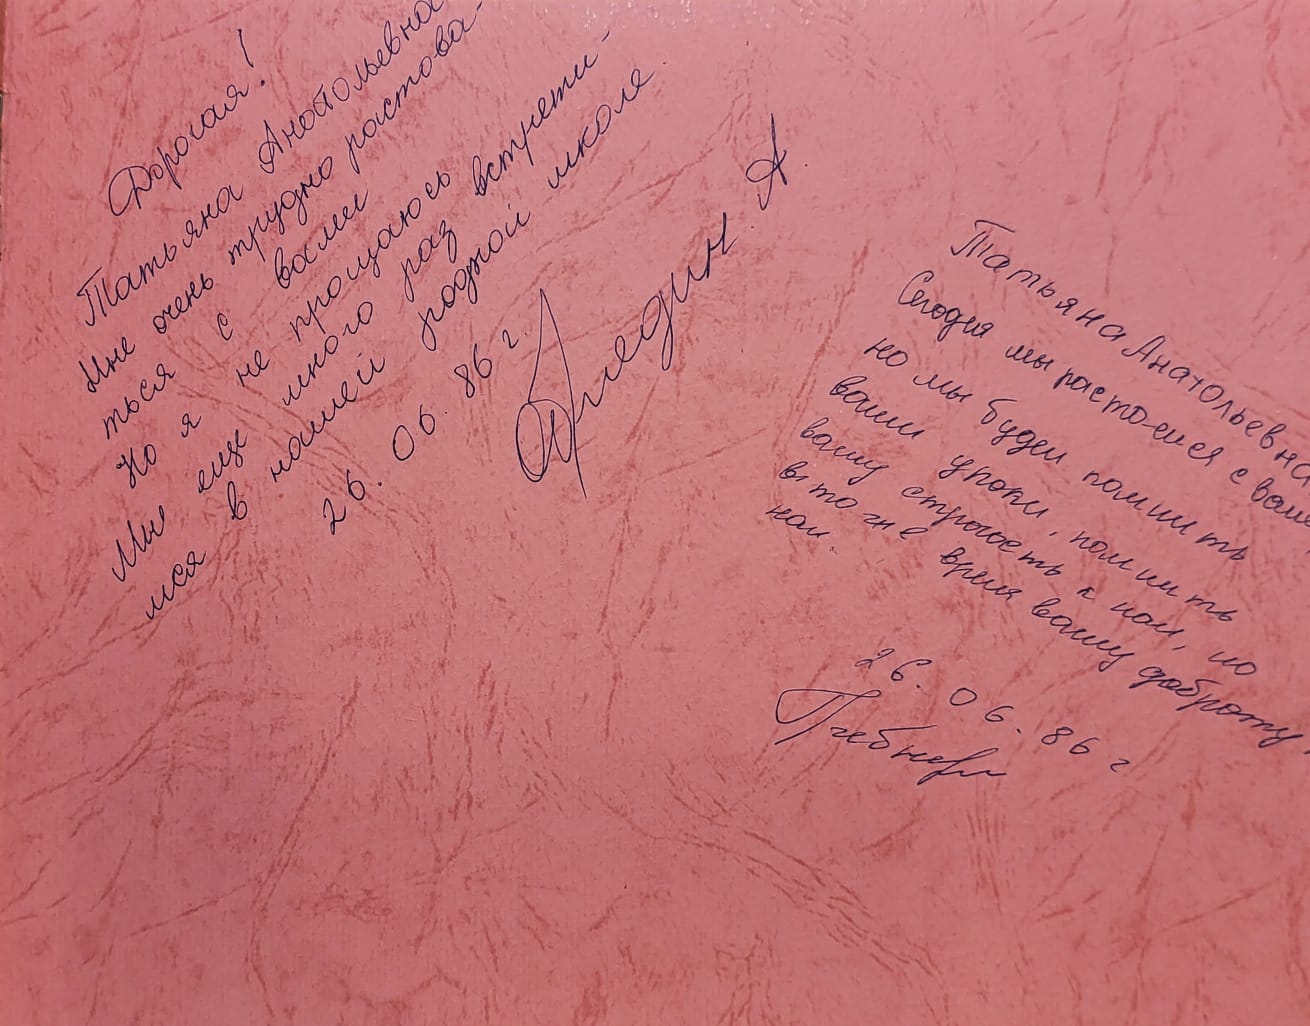 Дорогая!
Татьяна Анатольевна
Мне очень трудно растова-
ться с вами
Но я не прощаюсь
Мы еще много раз встрети-
мся в нашей родной школе
26. 06. 86 г.
А.
Татьяна Анатольевна
Сегодня мы растоемся с вами,
но мы будем помнить
ваши уроки, помнить
вашу строгость к нам, но
в то же время вашу доброту
нам.
26. 06. 86 г